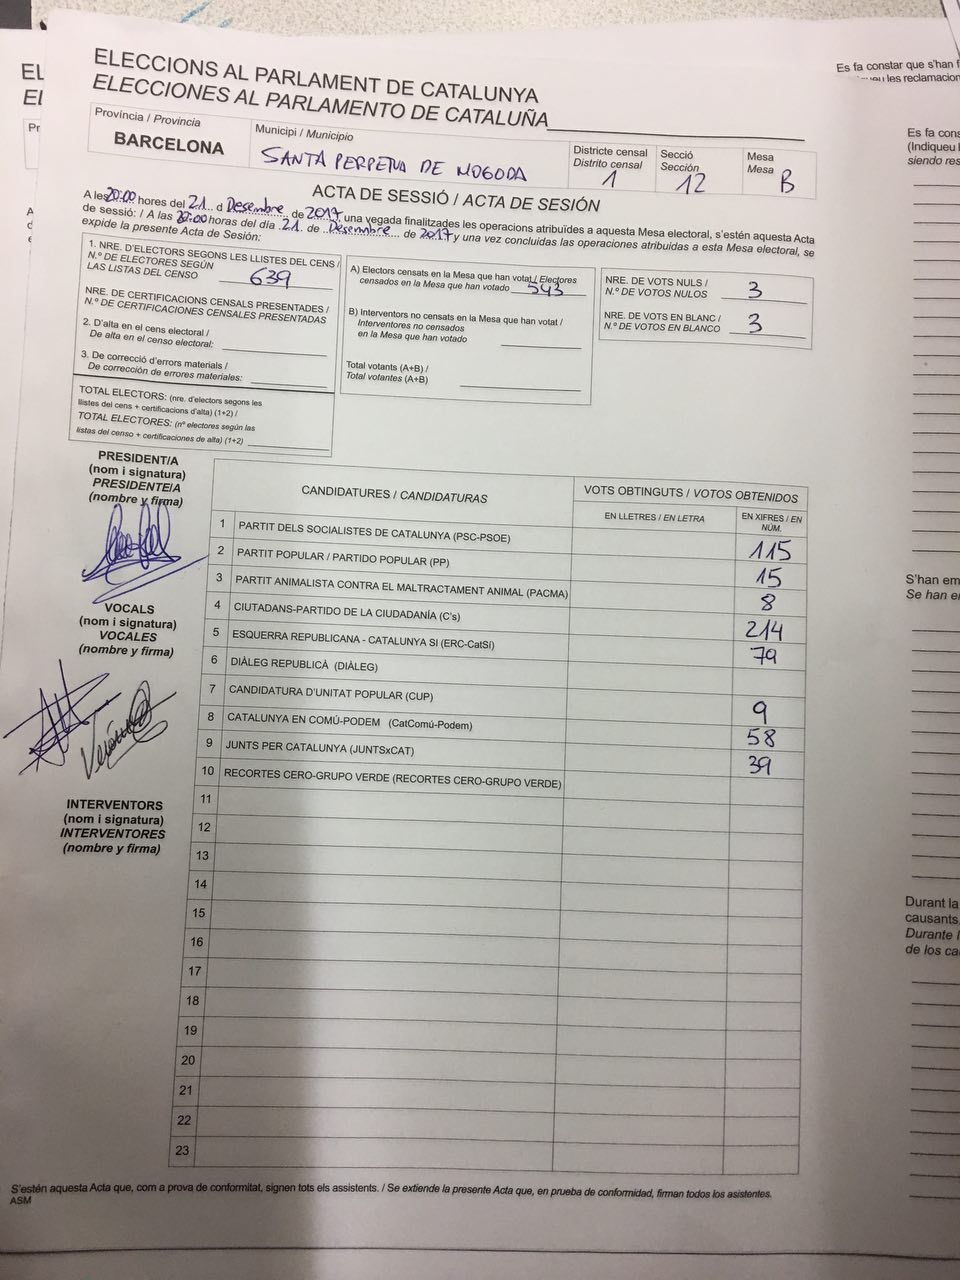 ELECCIONS AL PARLAMENT DE CATALUNYA
ELECCIONES AL PARLAMENTO DE CATALUÑA
Província / Provincia
BARCELONA
Municipi / Municipio
SANTA PERPETUA DE MOGODA
Districte censal
Distrito censal
1
Secció
Sección
12
Mesa
Mesa
B
ACTA DE SESSIÓ / ACTA DE SESIÓN
A les 20:00 hores del 21 d Desembre de 2017, una vegada finalitzades les operacions atribuïdes a aquesta Mesa electoral, s'estén aquesta Acta
de sessió: / A las 20:00 horas del día 21 de Desembre de 2017 y una vez concluidas las operaciones atribuidas a esta Mesa electoral, se
expide la presente Acta de Sesión:
1. NRE. D'ELECTORS SEGONS LES LLISTES DEL CENS /
N.º DE ELECTORES SEGÚN
LAS LISTAS DEL CENSO 639
NRE. DE CERTIFICACIONS CENSALS PRESENTADES /
N.º DE CERTIFICACIONES CENSALES PRESENTADAS
2. D'alta en el cens electoral /
De alta en el censo electoral:
3. De correcció d'errors materials /
De corrección de errores materiales:
TOTAL ELECTORS: (nre. d'electors segons les
llistes del cens + certificacions d'alta) (1+2) /
TOTAL ELECTORES: (nº electores según las
listas del censo + certificaciones de alta) (1+2)
A) Electors censats en la Mesa que han votat / Electores
censados en la Mesa que han votado 543
B) Interventors no censats en la Mesa que han votat /
Interventores no censados
en la Mesa que han votado
Total votants (A+B) /
Total votantes (A+B)
NRE. DE VOTS NULS /
N.º DE VOTOS NULOS 3
NRE. DE VOTS EN BLANC /
N.º DE VOTOS EN BLANCO 3
PRESIDENT/A
(nom i signatura)
PRESIDENTE/A
(nombre y firma)
VOCALS
(nom i signatura)
VOCALES
(nombre y firma)
INTERVENTORS
(nom i signatura)
INTERVENTORES
(nombre y firma)
CANDIDATURES / CANDIDATURAS
VOTS OBTINGUTS / VOTOS OBTENIDOS
EN LLETRES / EN LETRA
EN XIFRES / EN
NÚM.
1 PARTIT DELS SOCIALISTES DE CATALUNYA (PSC-PSOE) 115
2 PARTIT POPULAR / PARTIDO POPULAR (PP) 15
3 PARTIT ANIMALISTA CONTRA EL MALTRACTAMENT ANIMAL (PACMA) 8
4 CIUTADANS-PARTIDO DE LA CIUDADANÍA (C's) 214
5 ESQUERRA REPUBLICANA - CATALUNYA SI (ERC-CatSí) 79
6 DIÀLEG REPUBLICÀ (DIÀLEG)
7 CANDIDATURA D'UNITAT POPULAR (CUP) 9
8 CATALUNYA EN COMÚ-PODEM (CatComú-Podem) 58
9 JUNTS PER CATALUNYA (JUNTSxCAT) 39
10 RECORTES CERO-GRUPO VERDE (RECORTES CERO-GRUPO VERDE)
11
12
13
14
15
16
17
18
19
20
21
22
23
S'estén aquesta Acta que, com a prova de conformitat, signen tots els assistents. / Se extiende la presente Acta que, en prueba de conformidad, firman todos los asistentes.
ASM
Es fa constar que s'han
les reclamacion
Es fa cons
(Indiqueu
siendo res
S'han em
Se han e
Durant la
causants,
Durante
de los ca